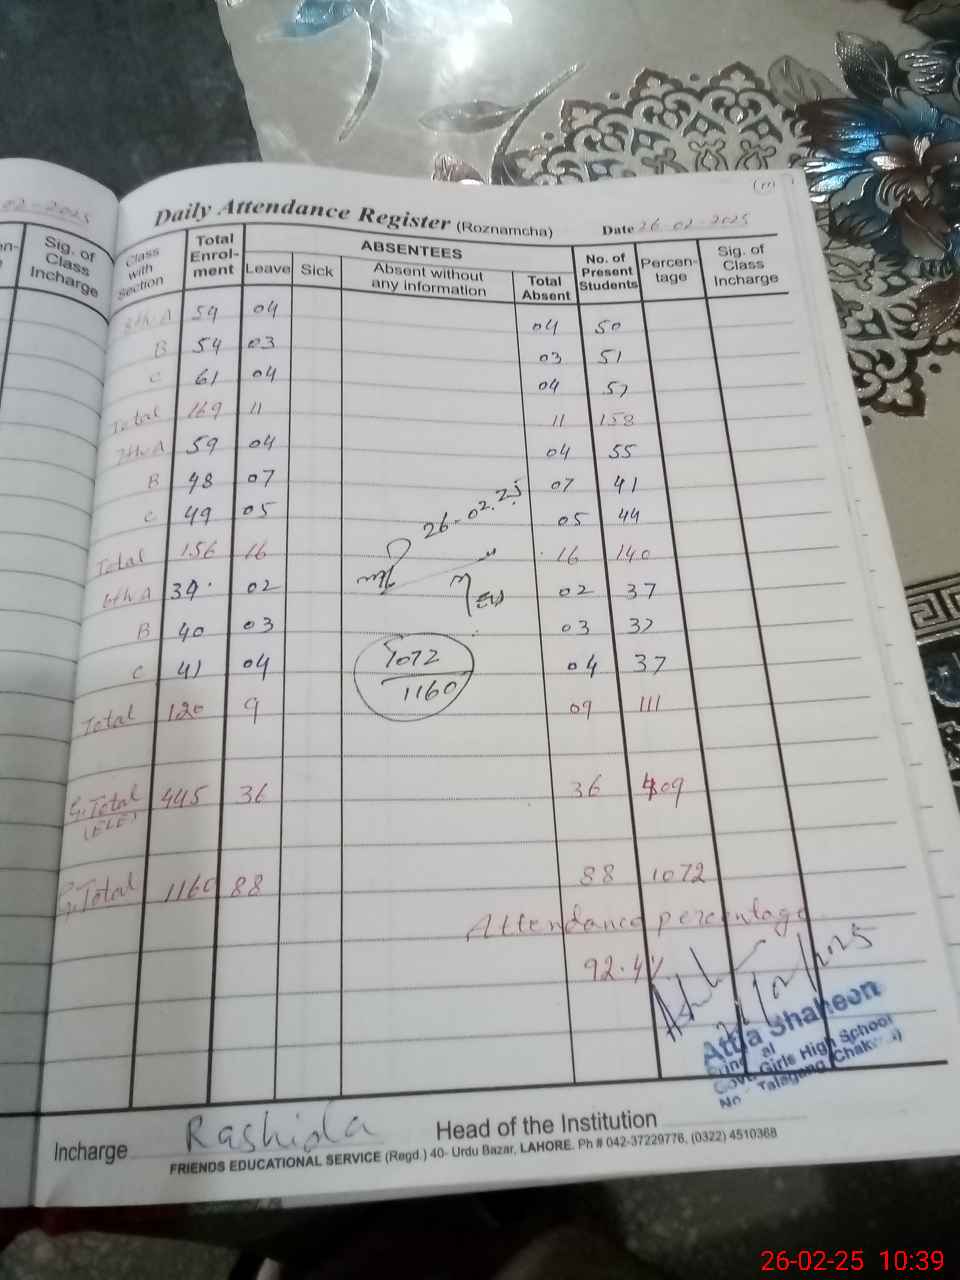 02-2025
Sig. of
Class
Incharge
(17)
Daily Attendance Register (Roznamcha) Date 26-02-2025
Class with Section Total Enrol-ment ABSENTEES No. of Present Students Percen-tage Sig. of Class Incharge
Leave Sick Absent without any information Total Absent
8th A 54 04 04 50
B 54 03 03 51
C 61 04 04 57
Total 169 11 11 158
7th A 59 04 04 55
B 48 07 07 41
C 49 05 05 44
26-02.25
Total 156 16 16 140
6th A 39 02 02 37
B 40 03 03 37
C 41 04 04 37
1072
1160
Total 120 9 09 111
G.Total 445 36 36 409
(ELE)
G.Total 1160 88 88 1072
Attendance percentage
92.4%
Atta Shaheen
Girls High School
Talagang (Chakwal)
Incharge Rashida Head of the Institution
FRIENDS EDUCATIONAL SERVICE (Regd.) 40- Urdu Bazar, LAHORE. Ph # 042-37229776, (0322) 4510368
26-02-25 10:39